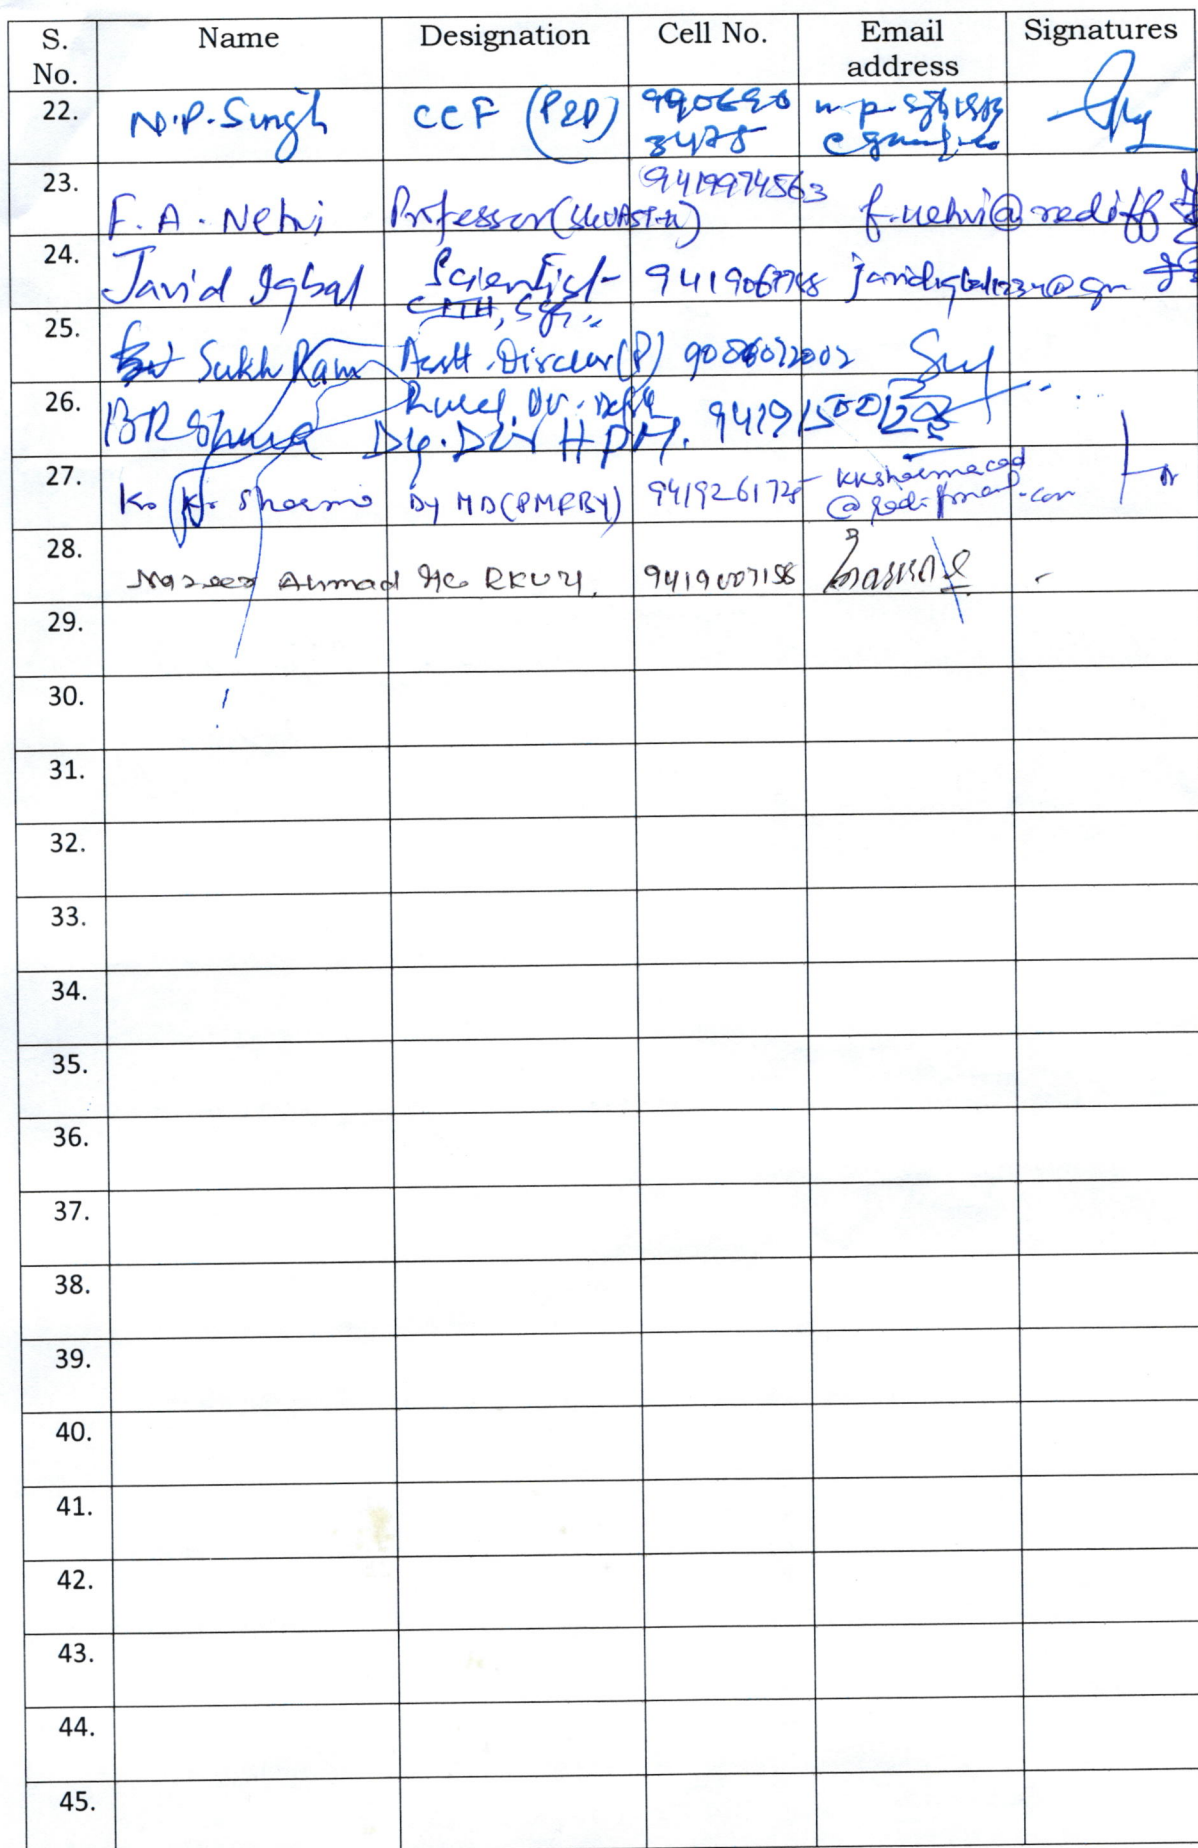 S. No. Name Designation Cell No. Email address Signatures
22. N.P. Singh CCF (P&D) 990690 3478
23. F.A. Nehvi Professor (SKUAST-K) 9419974563 f.nehvi@rediff
24. Javid Iqbal Scientist 9419067748 javidiqbal1234@gm
CITH, Sgr.
25. Sukh Ram Asstt. Director (P) 9086072002
26. BR Sharma Dy. Dir HPM. 9419150012
27. K. Kr. Sharma Dy MD (PMRBY) 9419261725 kksharmacad
@rediffmail.com
28. Nazeer Ahmad I/C RKVY. 9419007158
29.
30.
31.
32.
33.
34.
35.
36.
37.
38.
39.
40.
41.
42.
43.
44.
45.